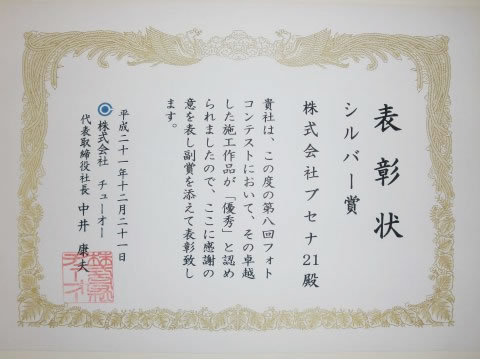 表彰状
シルバー賞
株式会社ブセナ21殿
貴社は、この度の第八回フォト
コンテストにおいて、その卓越
した施工作品が「優秀」と認め
られましたので、ここに感謝の
意を表し副賞を添えて表彰致し
ます。
平成二十一年十二月二十一日
株式会社 チューオー
代表取締役社長 中井 康夫